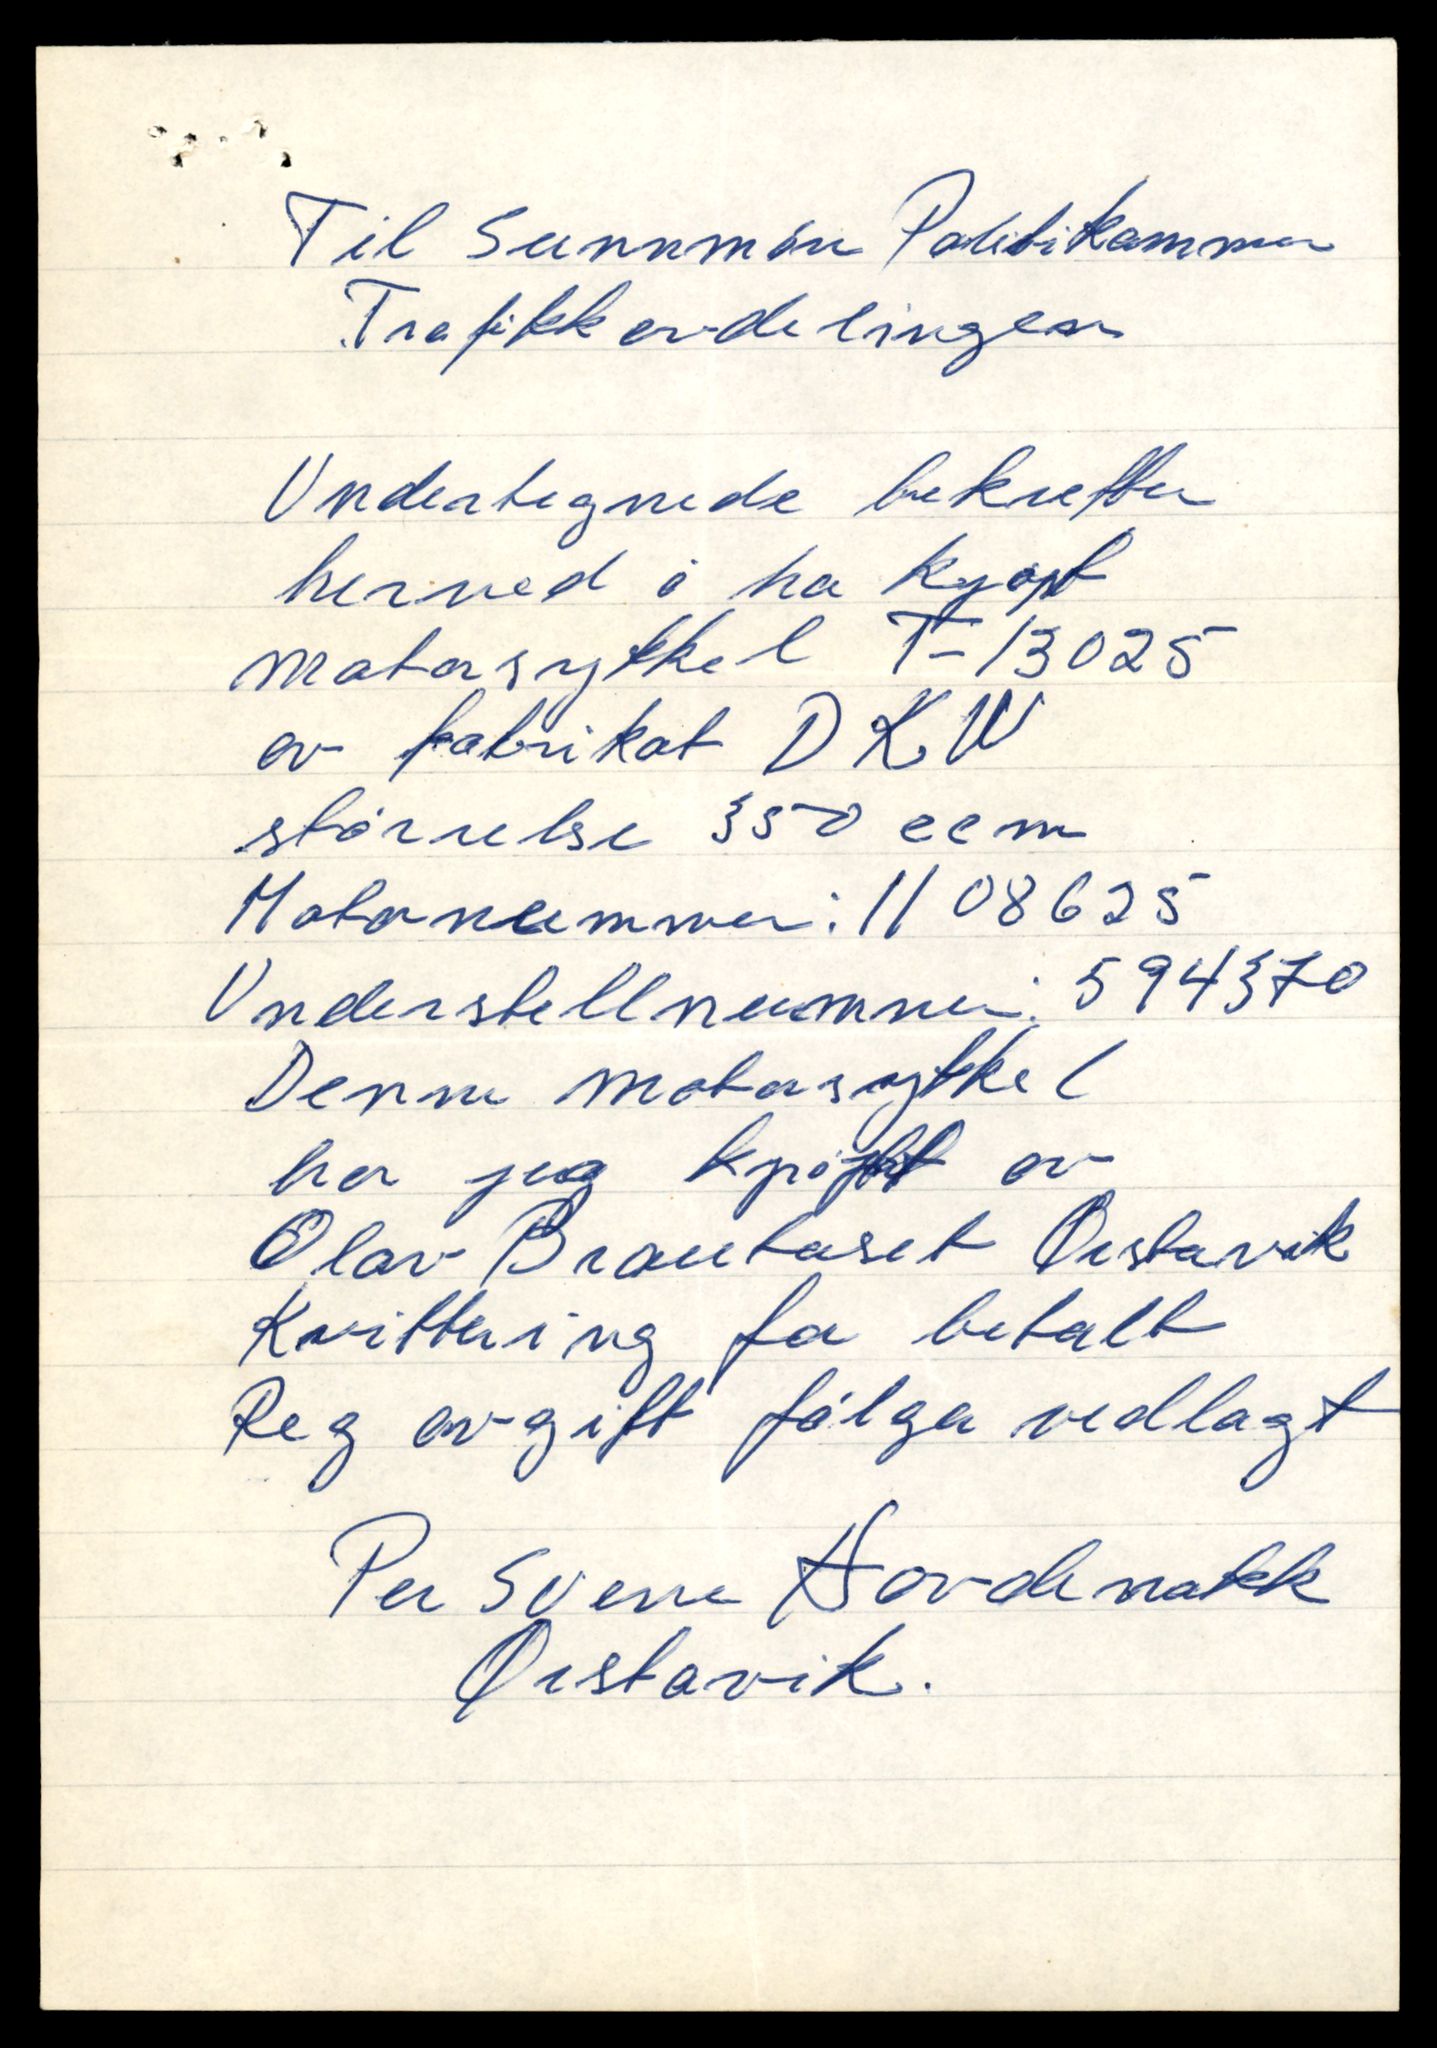 Til Sunnmöre Politikammer
Trafikkavdelingen
Undertegnede bekrefter
herved å ha kjöpt
motorsykkel T-13025
av fabrikat DKW
störrelse 350 ccm
Motornummer: 1108625
Understellnummer: 594370
Denne motorsykkel
har jeg kjöpt av
Olav Brautaset Ørstavik
Kvittering for betalt
Reg avgift fölger vedlagt
Per Sverre Hovdenakk
Ørstavik.